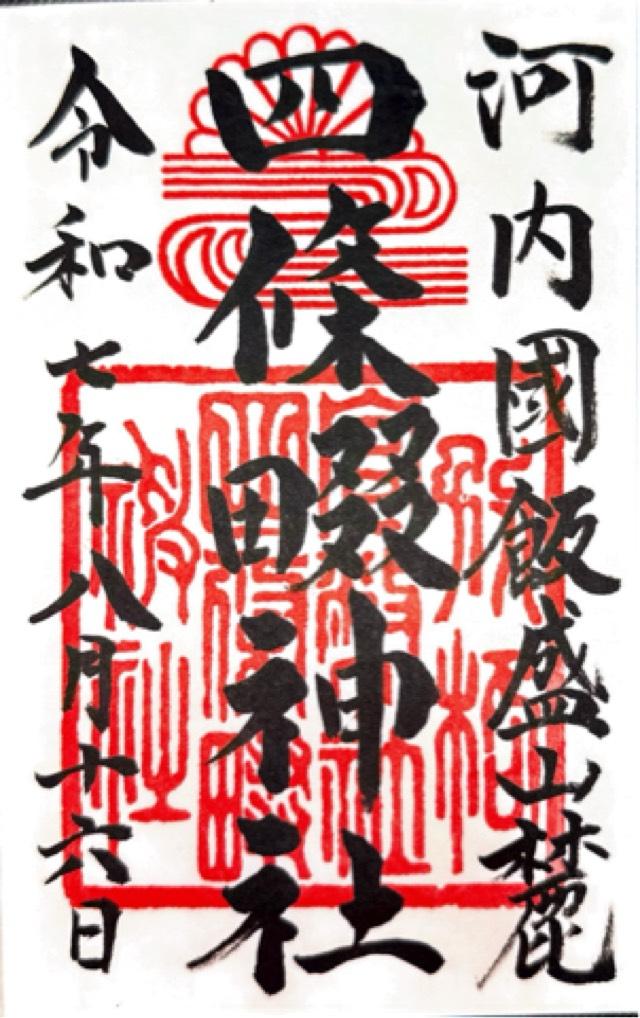 河内國飯盛山麓
四條畷神社
令和七年八月十六日